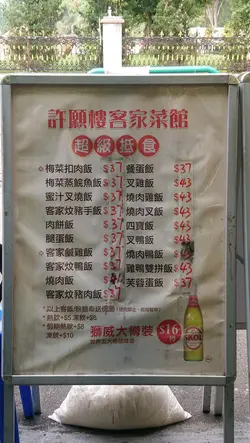 許願樓客家菜館
超級抵食
梅菜扣肉飯 $37
梅菜蒸鯇魚飯 $37
蜜汁叉燒飯 $37
客家炆豬手飯 $37
肉餅飯 $37
腿蛋飯 $37
客家鹹雞飯 $37
客家炆鴨飯 $37
燒肉飯
客家炆豬肉飯 $37
餐蛋飯 $37
叉雞飯 $43
燒肉雞飯 $43
燒肉叉飯 $43
四寶飯 $43
叉鴨飯 $43
燒肉鴨飯
雞鴨雙拼飯 $43
芙蓉蛋飯 $37
* 熱飲+$5 凍飲+$8
凍飲+$10
獅威大樽裝 $16
SKOL